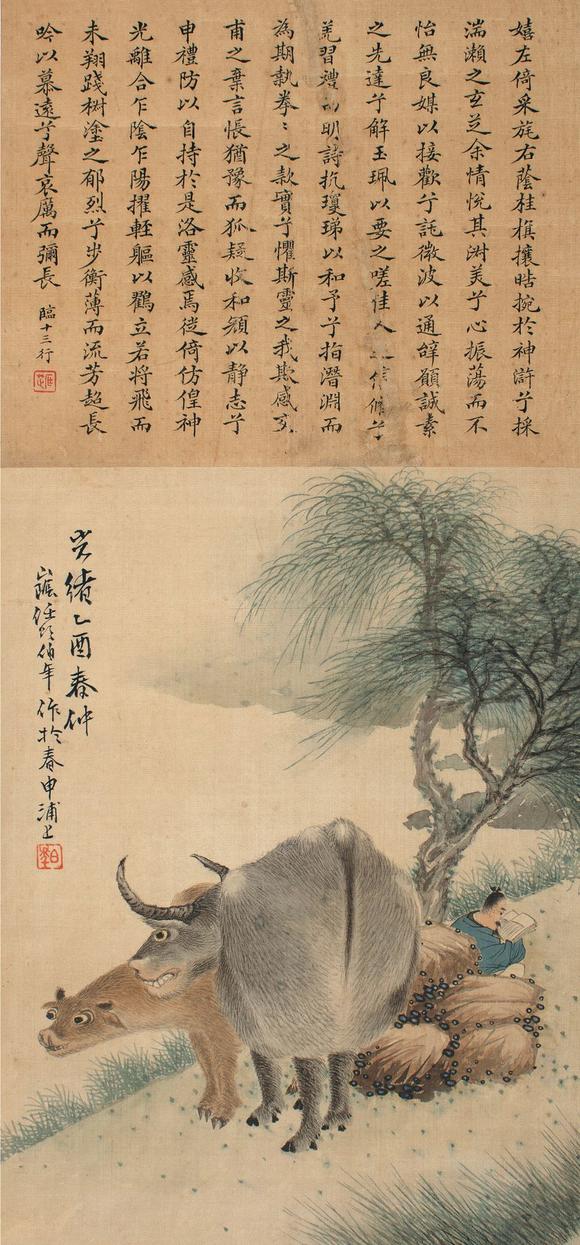 嬉左倚采旄右蔭桂棋攘皓捥於神滸兮採
湍瀨之玄芝余情悅其淑美兮心振蕩而不
怡無良媒以接歡兮託微波以通辝願誠素
之先達兮解玉珮以要之嗟佳人之信脩兮
羌習禮而明詩抗瓊珶以和予兮指潛淵而
為期執拳〻之款實兮懼斯靈之我欺感交
甫之棄言悵猶豫而狐疑收和顏以静志兮
申禮防以自持於是洛靈感焉徙倚仿偟神
光離合乍陰乍陽擢輕軀以鶴立若將飛而
未翔踐椒塗之郁烈兮步衡薄而流芳超長
吟以慕遠兮聲哀厲而彌長
臨十三行
光緒乙酉春仲
山陰任頤伯年作於春申浦上